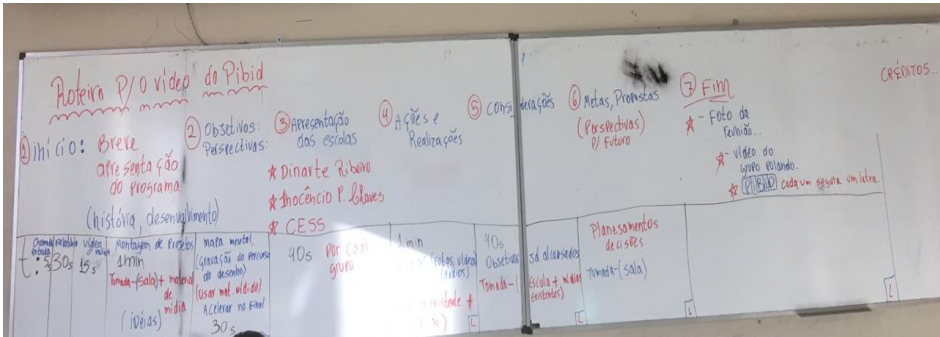 Roteiro P/ O vídeo do Pibid
① início: Breve
apresentação
do programa
(história, desenvolvimento)
② Objetivos:
Perspectivas:
③ Apresentação
das escolas
* Dinarte Ribeiro
* Inocêncio P. Chaves
* CESS
④ Ações e
Realizações
⑤ Considerações
⑥ Metas, Propostas
(Perspectivas)
P/ Futuro
⑦ Fim
* - Foto da
reunião...
* - vídeo do
grupo pulando.
* PIBID cada um segura um letra.
CRÉDITOS...
t:
30s
vídeo
15s
Montagem de Projetos
1min
Tomada-(sala)+ material
de
mídia
(idéias)
mapa mental,
(gravação do percurso
do desenho)
(usar mat. mídia)
Acelerar no final
30s
40s Por cada
grupo
1min
40s
Objetivos já alcançados
Tomada-(escola + mídias
existentes)
Planejamentos
decisões
Tomada-(sala)